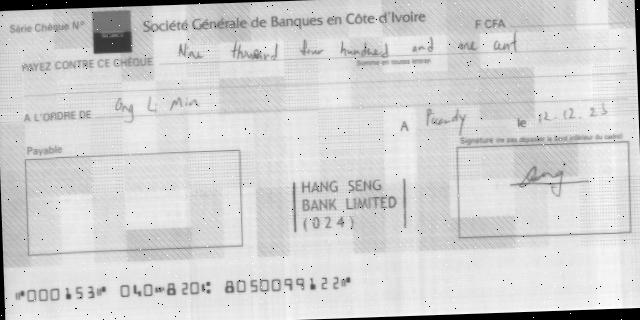 Série Chèque N° Société Générale de Banques en Côte-d'Ivoire F CFA
PAYEZ CONTRE CE CHÈQUE Nine thousand four hundred and one cent
somme en toutes lettres
A L'ORDRE DE Ong Li Min
A le 12.12.23
Payable
Signature (ne pas dépasser le bord inférieur du cadre)
HANG SENG
BANK LIMITED
(024)
Ong
"000153" 040-820: 8050099122"